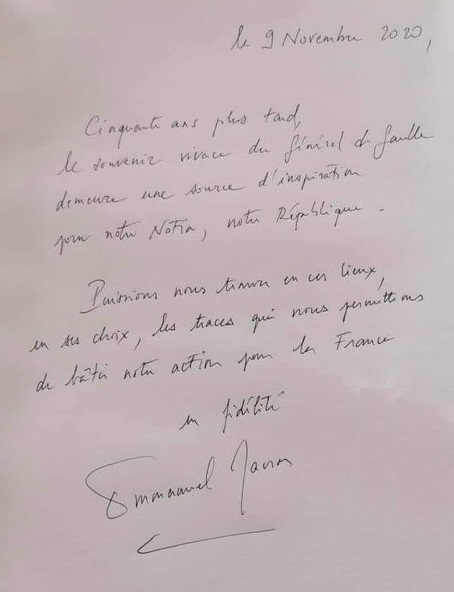 le 9 Novembre 2020,
Cinquante ans plus tard,
le souvenir vivace du Général de Gaulle
demeure une source d'inspiration
pour notre Nation, notre République.
Puissions nous trouver en ces lieux,
en ses choix, les traces qui nous permettrons
de bâtir notre action pour la France
en fidélité
Emmanuel Macron